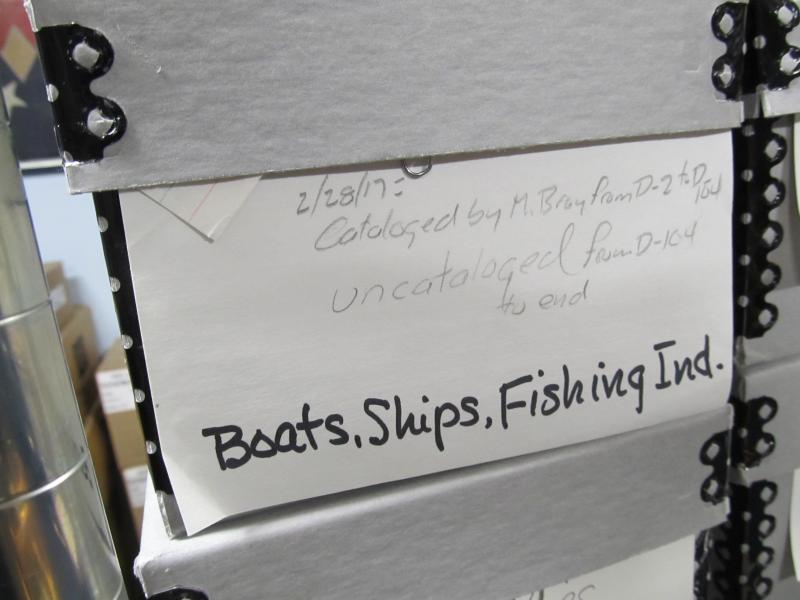 2/28/17:
Cataloged by M. Bray from D-2 to D-104
uncataloged from D-104
to end
Boats, Ships, Fishing Ind.